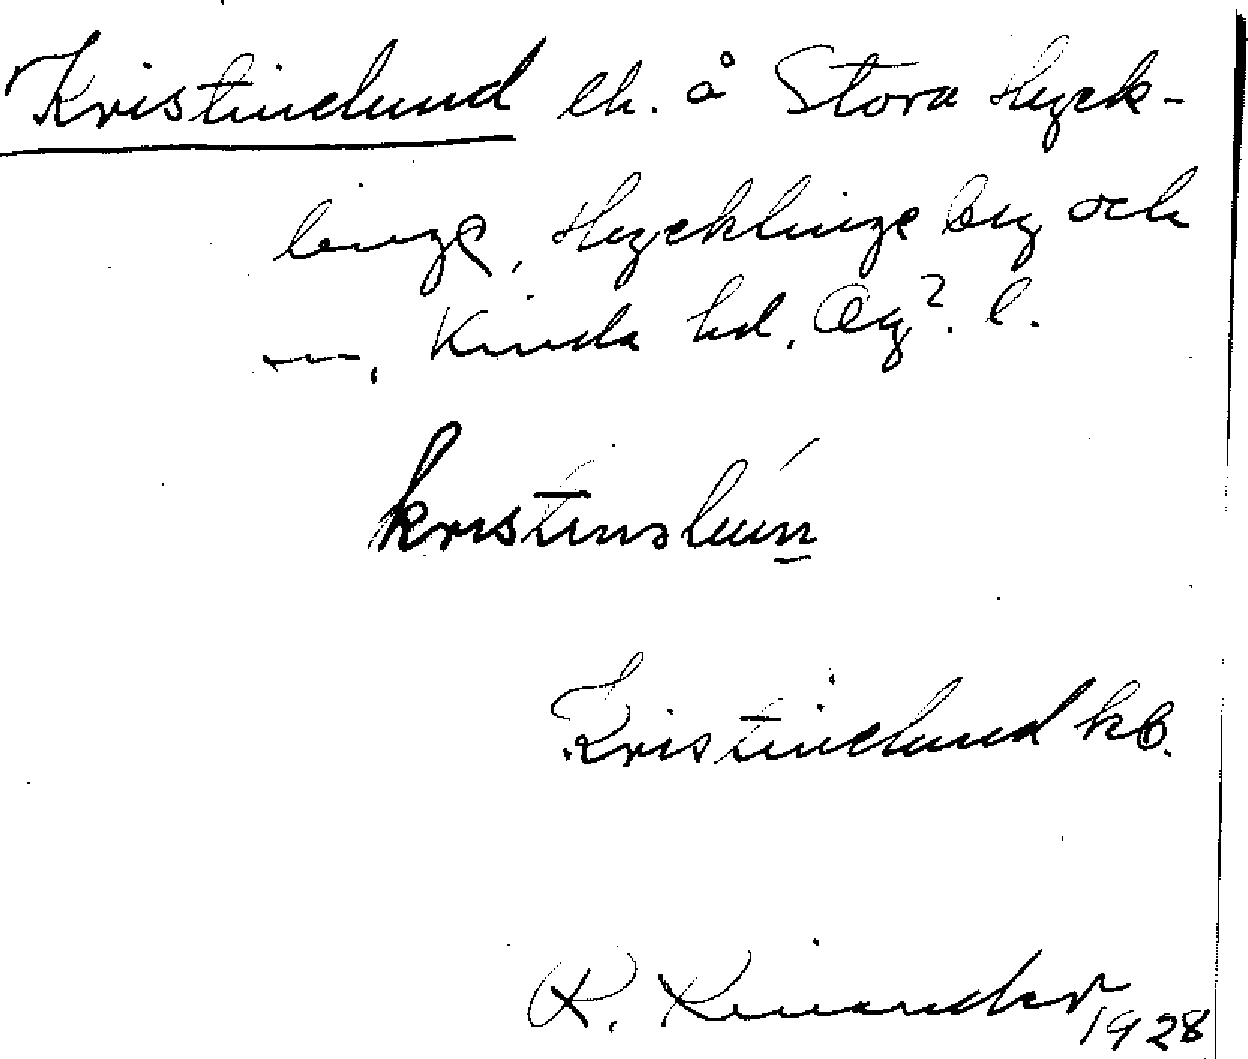 Kristinelund lh. å Stora Hyck-
linge, Hycklinge by och
—, Kinda hd, Ög. l.
kristinslún
Kristinelund kb.
R. 1928